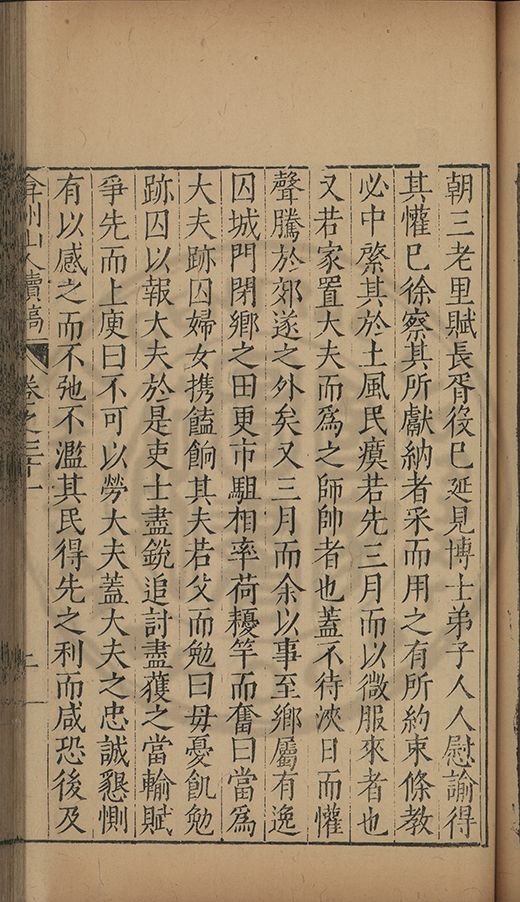 朝三老里賦長胥役已延見博士弟子人人慰諭得
其懽已徐察其所獻納者采而用之有所約束條教
必中綮其於土風民瘼若先三月而以微服來者也
又若家置大夫而為之師帥者也蓋不待浹日而懽
聲騰於郊遂之外矣又三月而余以事至鄉屬有逸
囚城門閉鄉之田更市駔相率荷耰竿而奮曰當為
大夫跡囚婦女携饁餉其夫若父而勉曰毋憂飢勉
跡囚以報大夫於是吏士盡銳追討盡獲之當輸賦
爭先而上庾曰不可以勞大夫蓋大夫之忠誠懇惻
有以感之而不弛不濫其民得先之利而咸恐後及
弇州山人續稿 卷之三十一